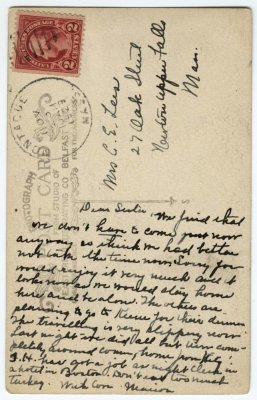 2 CENTS 2
MONTAGUE
MASS.
PHOTOGRAPH
POST CARD
STUDIO OF
BELFAST
Mrs C. E. Lees
27 Oak Street
Newton Upper Falls
Mass.
Dear Sister, We find that
we don't have to come just now
anyway so think we had better
not take the time now. Sorry for you
would enjoy it very much and it
looks now as we would stay home
here and be alone. The others are
planning to go to Keene for their dinner.
The travelling is very slippery now
Last night we did all but turn com-
pletely around coming home from
S. H. have got a job as night clerk in
a hotel in Boston. Don't eat too much
turkey. With love Marion